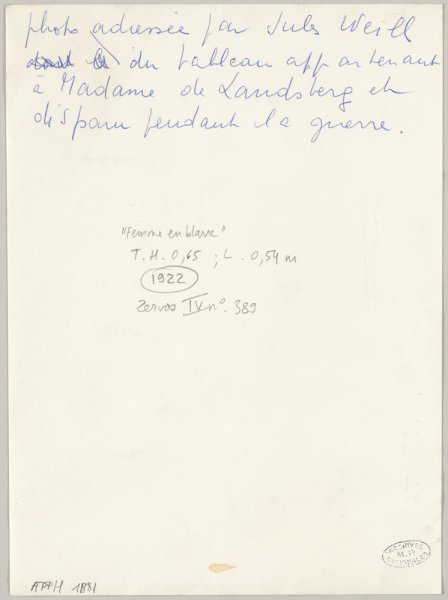 photo adressée par Jules Weill
du tableau appartenant
à Madame de Landsberg et
disparu pendant la guerre.
"femme en blanc"
T. H. 0,65 ; L. 0,54 m
1922
Zervos IV n°. 389
ARCHIVES
NATIONALES
APPH 1831